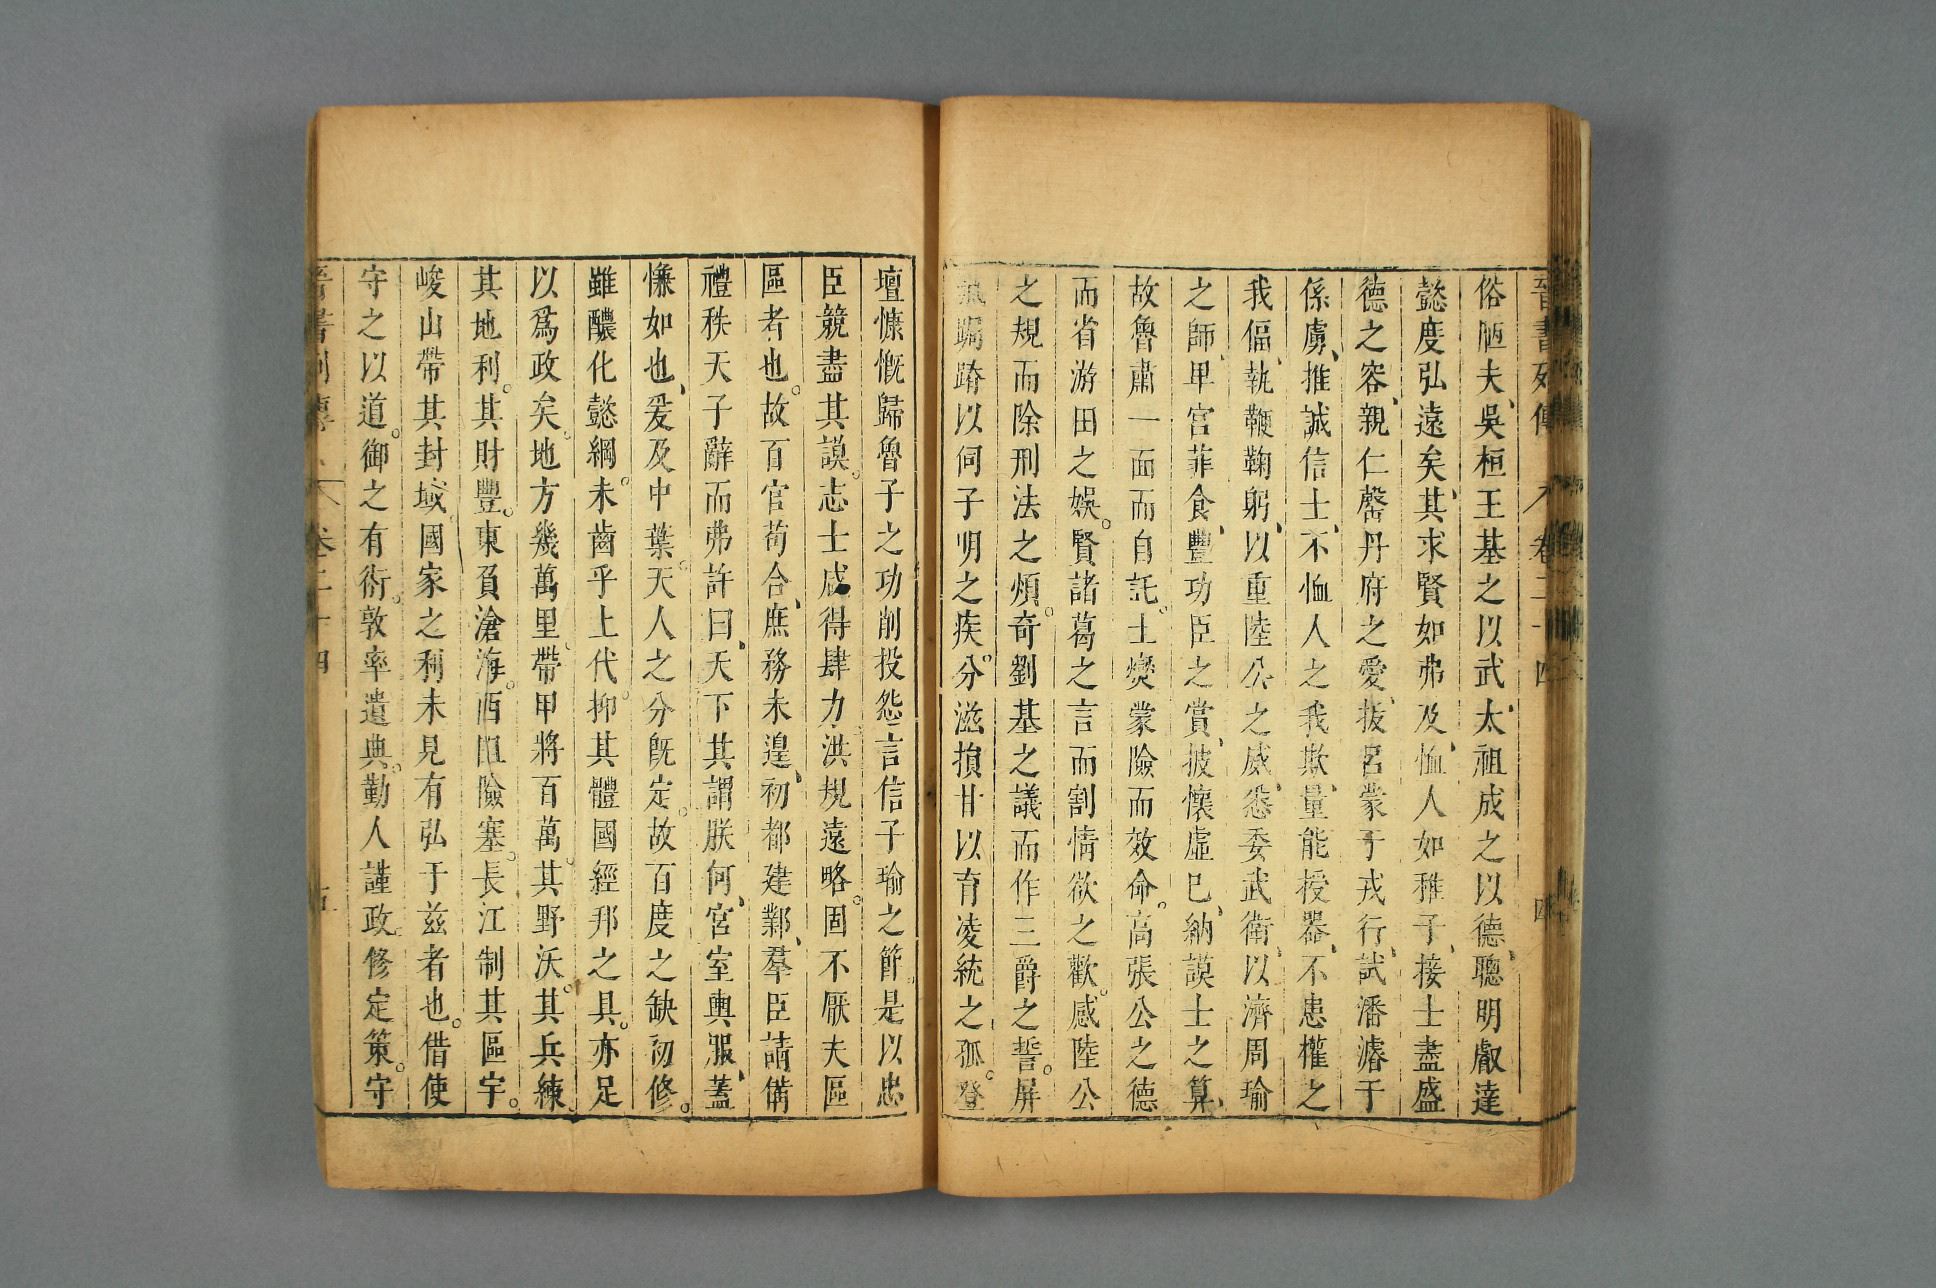 晉書列傳 卷二十四 四
俗陋夫、吳桓王基之以武、太祖成之以德、聰明叡達
懿度弘遠矣、其求賢如弗及、恤人如稚子、接士盡盛
德之容、親仁罄丹府之愛、拔呂蒙于戎行、試潘濬于
係虜、推誠信士、不恤人之我欺、量能授器、不患權之
我偪、執鞭鞠躬、以重陸公之威、悉委武衛、以濟周瑜
之師、卑宮菲食、豐功臣之賞、披懷虛己、納謨士之算、
故魯肅一面而自託。士燮蒙險而效命。高張公之德
而省游田之娛。賢諸葛之言而割情欲之歡。感陸公
之規而除刑法之煩。奇劉基之議而作三爵之誓。屏
氣跼蹐以伺子明之疾。分滋損甘以育凌統之孤。登
壇慷慨歸魯子之功削投怨言信子瑜之節。是以忠
臣競盡其謨。志士咸得肆力。洪規遠略。固不厭夫區
區者也。故百官苟合、庶務未遑、初都建鄴、羣臣請備
禮秩天子辭而弗許曰、天下其謂朕何、宮室輿服、蓋
慊如也、爰及中葉。天人之分旣定。故百度之缺初修。
雖醲化懿綱。未齒乎上代。抑其體國經邦之具。亦足
以爲政矣。地方幾萬里、帶甲將百萬。其野沃。其兵練。
其地利。其財豐。東負滄海。西阻險塞。長江制其區宇。
峻山帶其封域。國家之利未見有弘于兹者也。借使
守之以道。御之有術。敦率遺典。勤人謹政。修定策。守
晉書列傳 卷二十四